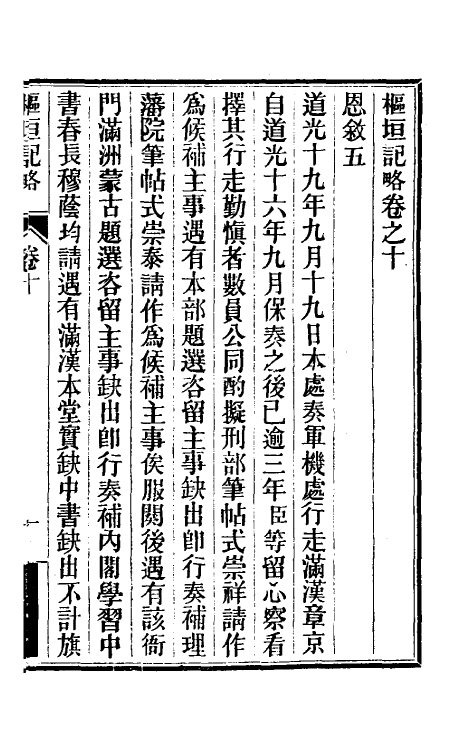 樞垣記略卷之十
恩敘五
道光十九年九月十九日本處奏軍機處行走滿漢章京
自道光十六年九月保奏之後已逾三年臣等留心察看
擇其行走勤愼者數員公同酌擬刑部筆帖式崇祥請作
爲候補主事遇有本部題選咨留主事缺出卽行奏補理
藩院筆帖式崇泰請作爲候補主事俟服闋後遇有該衙
門滿洲蒙古題選咨留主事缺出卽行奏補內閣學習中
書春長穆蔭均請遇有滿漢本堂實缺中書缺出不計旗
樞垣記略
卷十
一